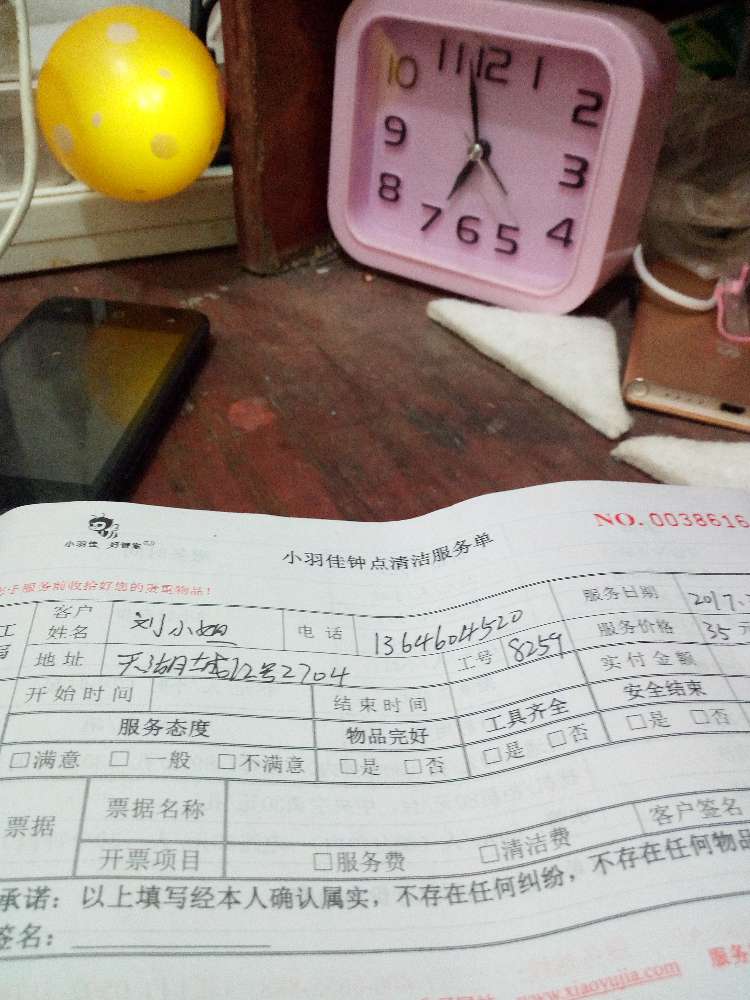 11 12 1
10 2
9 3
8 4
7 6 5
小羽佳 好管家
小羽佳钟点清洁服务单
NO. 0038616
服务前收拾好您的贵重物品!
客户姓名 刘小姐 电话 1364604520 服务日期 2017.
地址 天湖城12号2704 工号 8259 服务价格 35元
开始时间 结束时间 实付金额
服务态度 物品完好 工具齐全 安全结束
□满意 □一般 □不满意 □是 □否 □是 □否 □是 □否
票据 票据名称 客户签名
开票项目 □服务费 □清洁费
承诺：以上填写经本人确认属实，不存在任何纠纷，不存在任何物品
签名：
www.xiaoyujia.com 服务